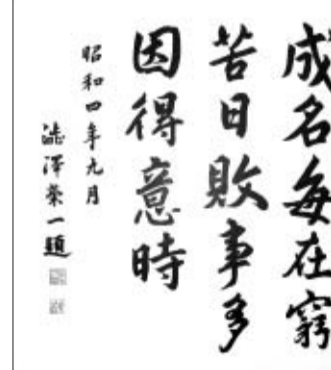 成名每在窮
苦日敗事多
因得意時
昭和四年九月
澁澤榮一題